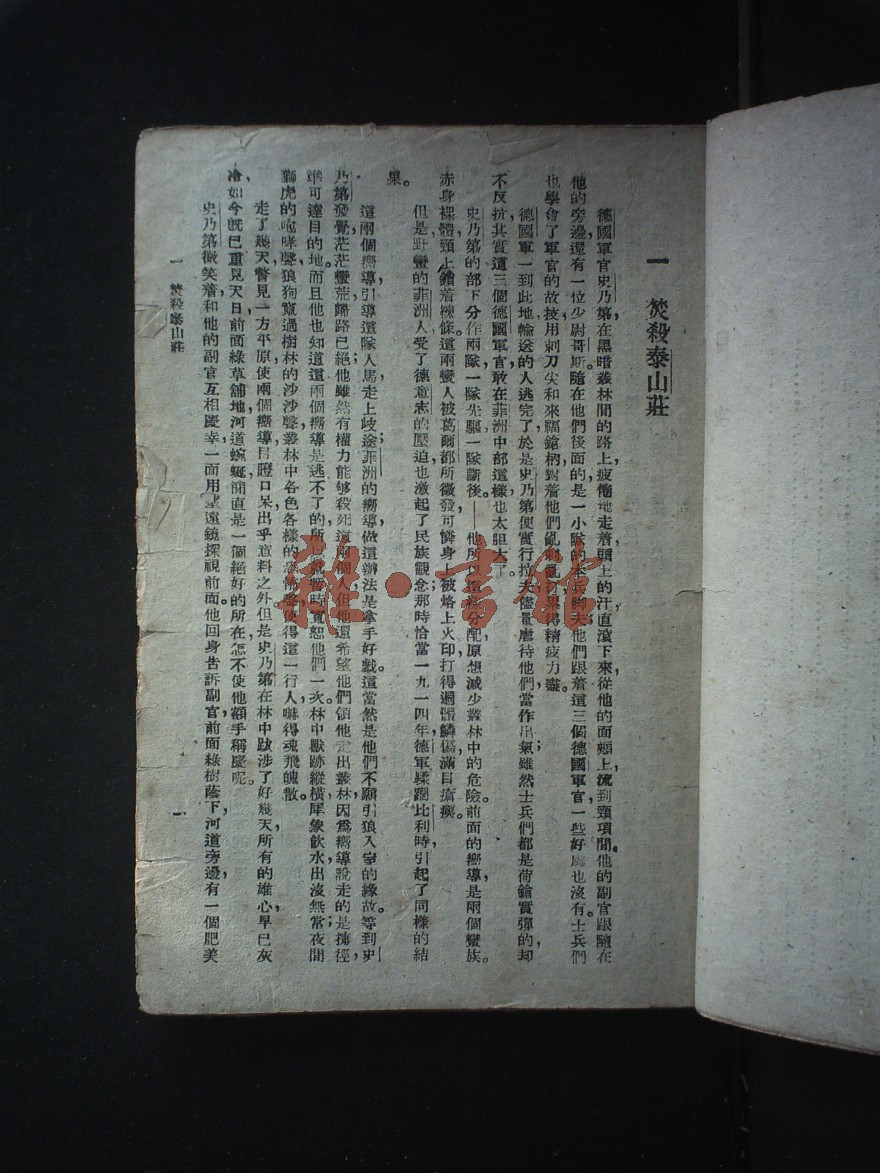 一　焚殺泰山莊
德國軍官史乃第在黑暗叢林間的路上疲憊地走着，頭上的汗直滾下來，從他的面頰上，流到頸項間。他的副官跟隨在
他的旁邊，還有一位少尉哥斯隨在他們後面的是一小隊的本兵。脚夫他們跟着這三個德國軍官一些好處也沒有。士兵們
也學會了軍官的故技，用刺刀尖和來福鎗柄對着他們亂刺亂打，累得精疲力盡。
德國軍一到此地，輸送的人逃完了，於是史乃第便實行拉夫，儘量虐待他們，當作出氣；雖然士兵們都是荷鎗實彈的，却
不反抗其實這三個德國軍官敢在菲洲中部這樣，也太胆大了。
史乃第的部下分作兩隊，一隊先驅，一隊斷後。——他所以這樣分配，原想減少叢林中的危險。前面的嚮導是兩個蠻族。
赤身裸體，頭上鑽着棟條。這兩蠻人被葛爾部所徵發，可憐身上被烙上火印，打得遍體鱗傷，滿目瘡痍。
但是野蠻的菲洲人受了德意志的壓迫，也激起了民族觀念，那時恰當一九一四年德軍蹂躪比利時，引起了同樣的結
果。
這兩個嚮導，引導這隊人馬走上歧途，菲洲的嚮導做這辦法是拿手好戲。這當然是他們不願引狼入室的緣故。等到史
乃第發覺茫茫蠻荒，歸路已絕，他雖然有權力能够殺死這兩個人，但他還希望他們領他走出叢林，因爲嚮導說走的是捷徑，
準可達目的地。而且他也知道這兩個嚮導是逃不了的，所以就暫時寬恕他們一次。林中獸跡縱橫，犀象飲水，出沒無常，夜間
獅虎的咆哮聲，狼狗竄過樹林的沙沙聲，叢林中各色各樣的恐怖聲，使得這一行人嚇得魂飛魄散。
走了幾天，瞥見一方平原，使兩個嚮導目瞪口呆，出乎意料之外。但是史乃第在林中跋涉了好幾天，所有的雄心早已灰
冷，如今既已重見天日，前面綠草舖地，河道蜿蜒，簡直是一個絕好的所在，怎不使他額手稱慶呢。
史乃第微笑着和他的副官互相慶幸，一面用望遠鏡探視前面。他回身告訴副官，前面綠樹蔭下，河道旁邊，有一個肥美
一　焚殺泰山莊
一
雜·書館